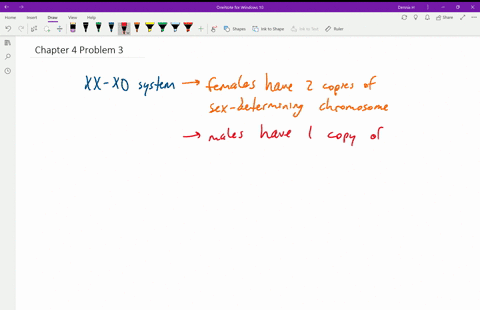 OneNote for Windows 10
Donna H
Home Insert Draw View Help
Shapes Ink to Shape Ink to Text Ruler
Chapter 4 Problem 3
XX-XO system → females have 2 copies of
sex-determining chromosome
→ males have 1 copy of